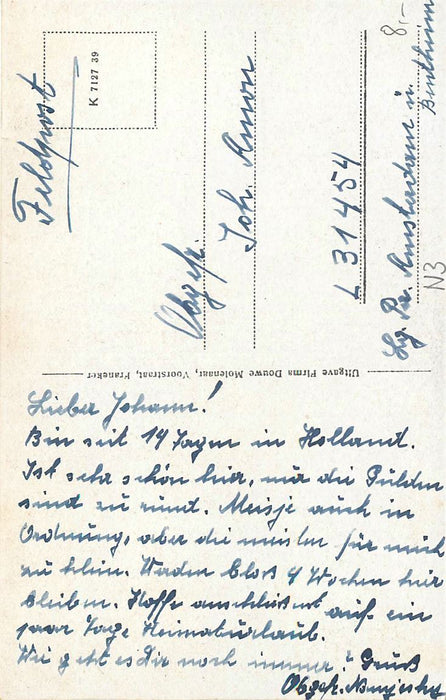 Feldpost
K 7127 39
Obgefr.
Joh. Amon
L 31454
Lg. Pa. Amsterdam ü.
Bentheim
8,-
N3
Uitgave Firma Douwe Molenaar, Voorstraat, Franeker
Lieber Johann!
Bin seit 14 Tagen in Holland.
Ist sehr schön hier, nur die Gulden
sind zu rund. Meisje auch in
Ordnung, aber die meisten für mich
zu klein. Werden bloß 4 Wochen hier
bleiben. Hoffe anschließend auf ein
paar Tage Heimaturlaub.
Wie geht es dir noch immer? Gruß
Obgefr.